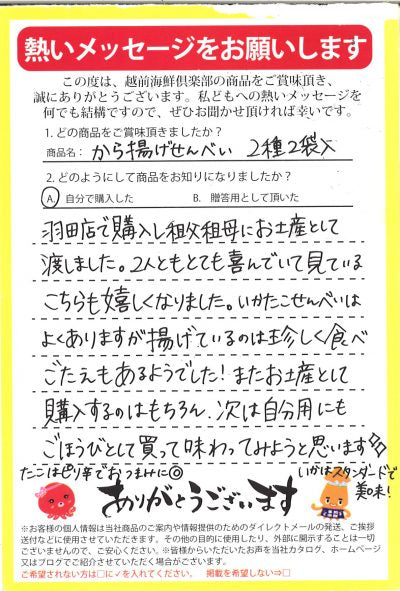 熱いメッセージをお願いします
この度は、越前海鮮倶楽部の商品をご賞味頂き、
誠にありがとうございます。私どもへの熱いメッセージを
何でも結構ですので、ぜひお聞かせ頂ければ幸いです。
1. どの商品をご賞味頂きましたか?
商品名: から揚げせんべい 2種2袋入
2. どのようにして商品をお知りになりましたか?
A. 自分で購入した B. 贈答用として頂いた
羽田店で購入し祖父祖母にお土産として
渡しました。2人ともとても喜んでいて見ている
こちらも嬉しくなりました。いかたこせんべいは
よくありますが揚げているのは珍しく食べ
ごたえもあるようでした!またお土産として
購入するのはもちろん、次は自分用にも
ごほうびとして買って味わってみようと思います
たこはピリ辛でおつまみに◎
いかはスタンダードで
美味!
ありがとうございます
※お客様の個人情報は当社商品のご案内や情報提供のためのダイレクトメールの発送、ご挨拶
送付などに使用させていただきます。その他の目的に使用したり、外部に開示することは一切
ございませんので、ご安心ください。※皆様からいただいたお声を当社カタログ、ホームページ
又はブログでご紹介させていただく場合がございます。
ご希望されない方は□に✓を入れてください。 掲載を希望しない⇒□